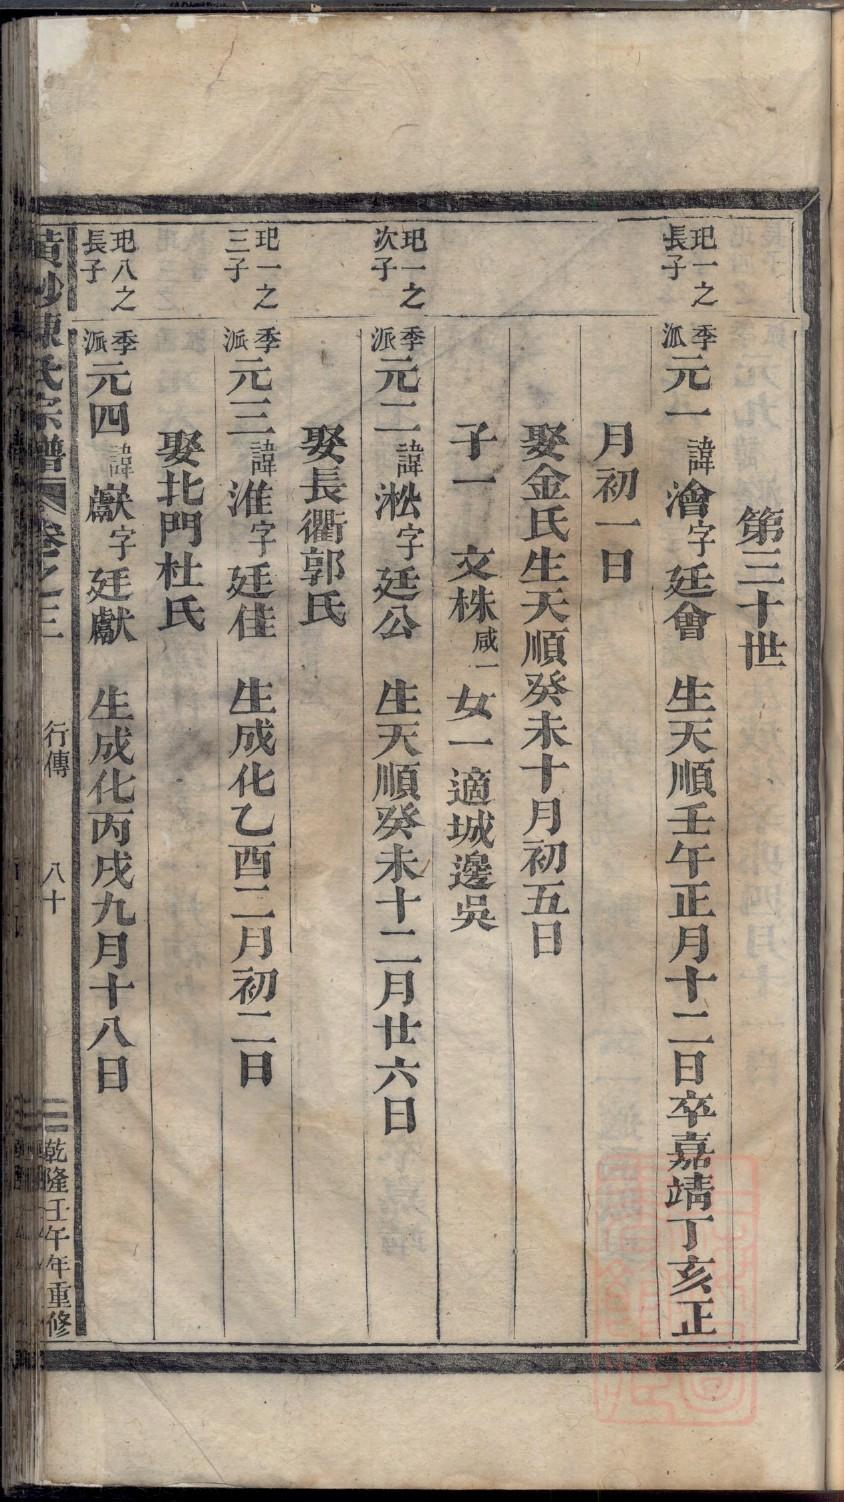 第三十世
玘一之長子
季派元一諱澮字廷會 生天順壬午正月十二日卒嘉靖丁亥正
月初一日
娶金氏生天順癸未十月初五日
子一 文株咸一 女一適城邊吳
玘一之次子
季派元二諱淞字廷公 生天順癸未十二月廿六日
娶長衢郭氏
玘一之三子
季派元三諱淮字廷佳 生成化乙酉二月初二日
娶北門杜氏
玘八之長子
季派元四諱獻字廷獻 生成化丙戌九月十八日
陳氏宗譜 卷之三 行傳 八十 乾隆壬午年重修